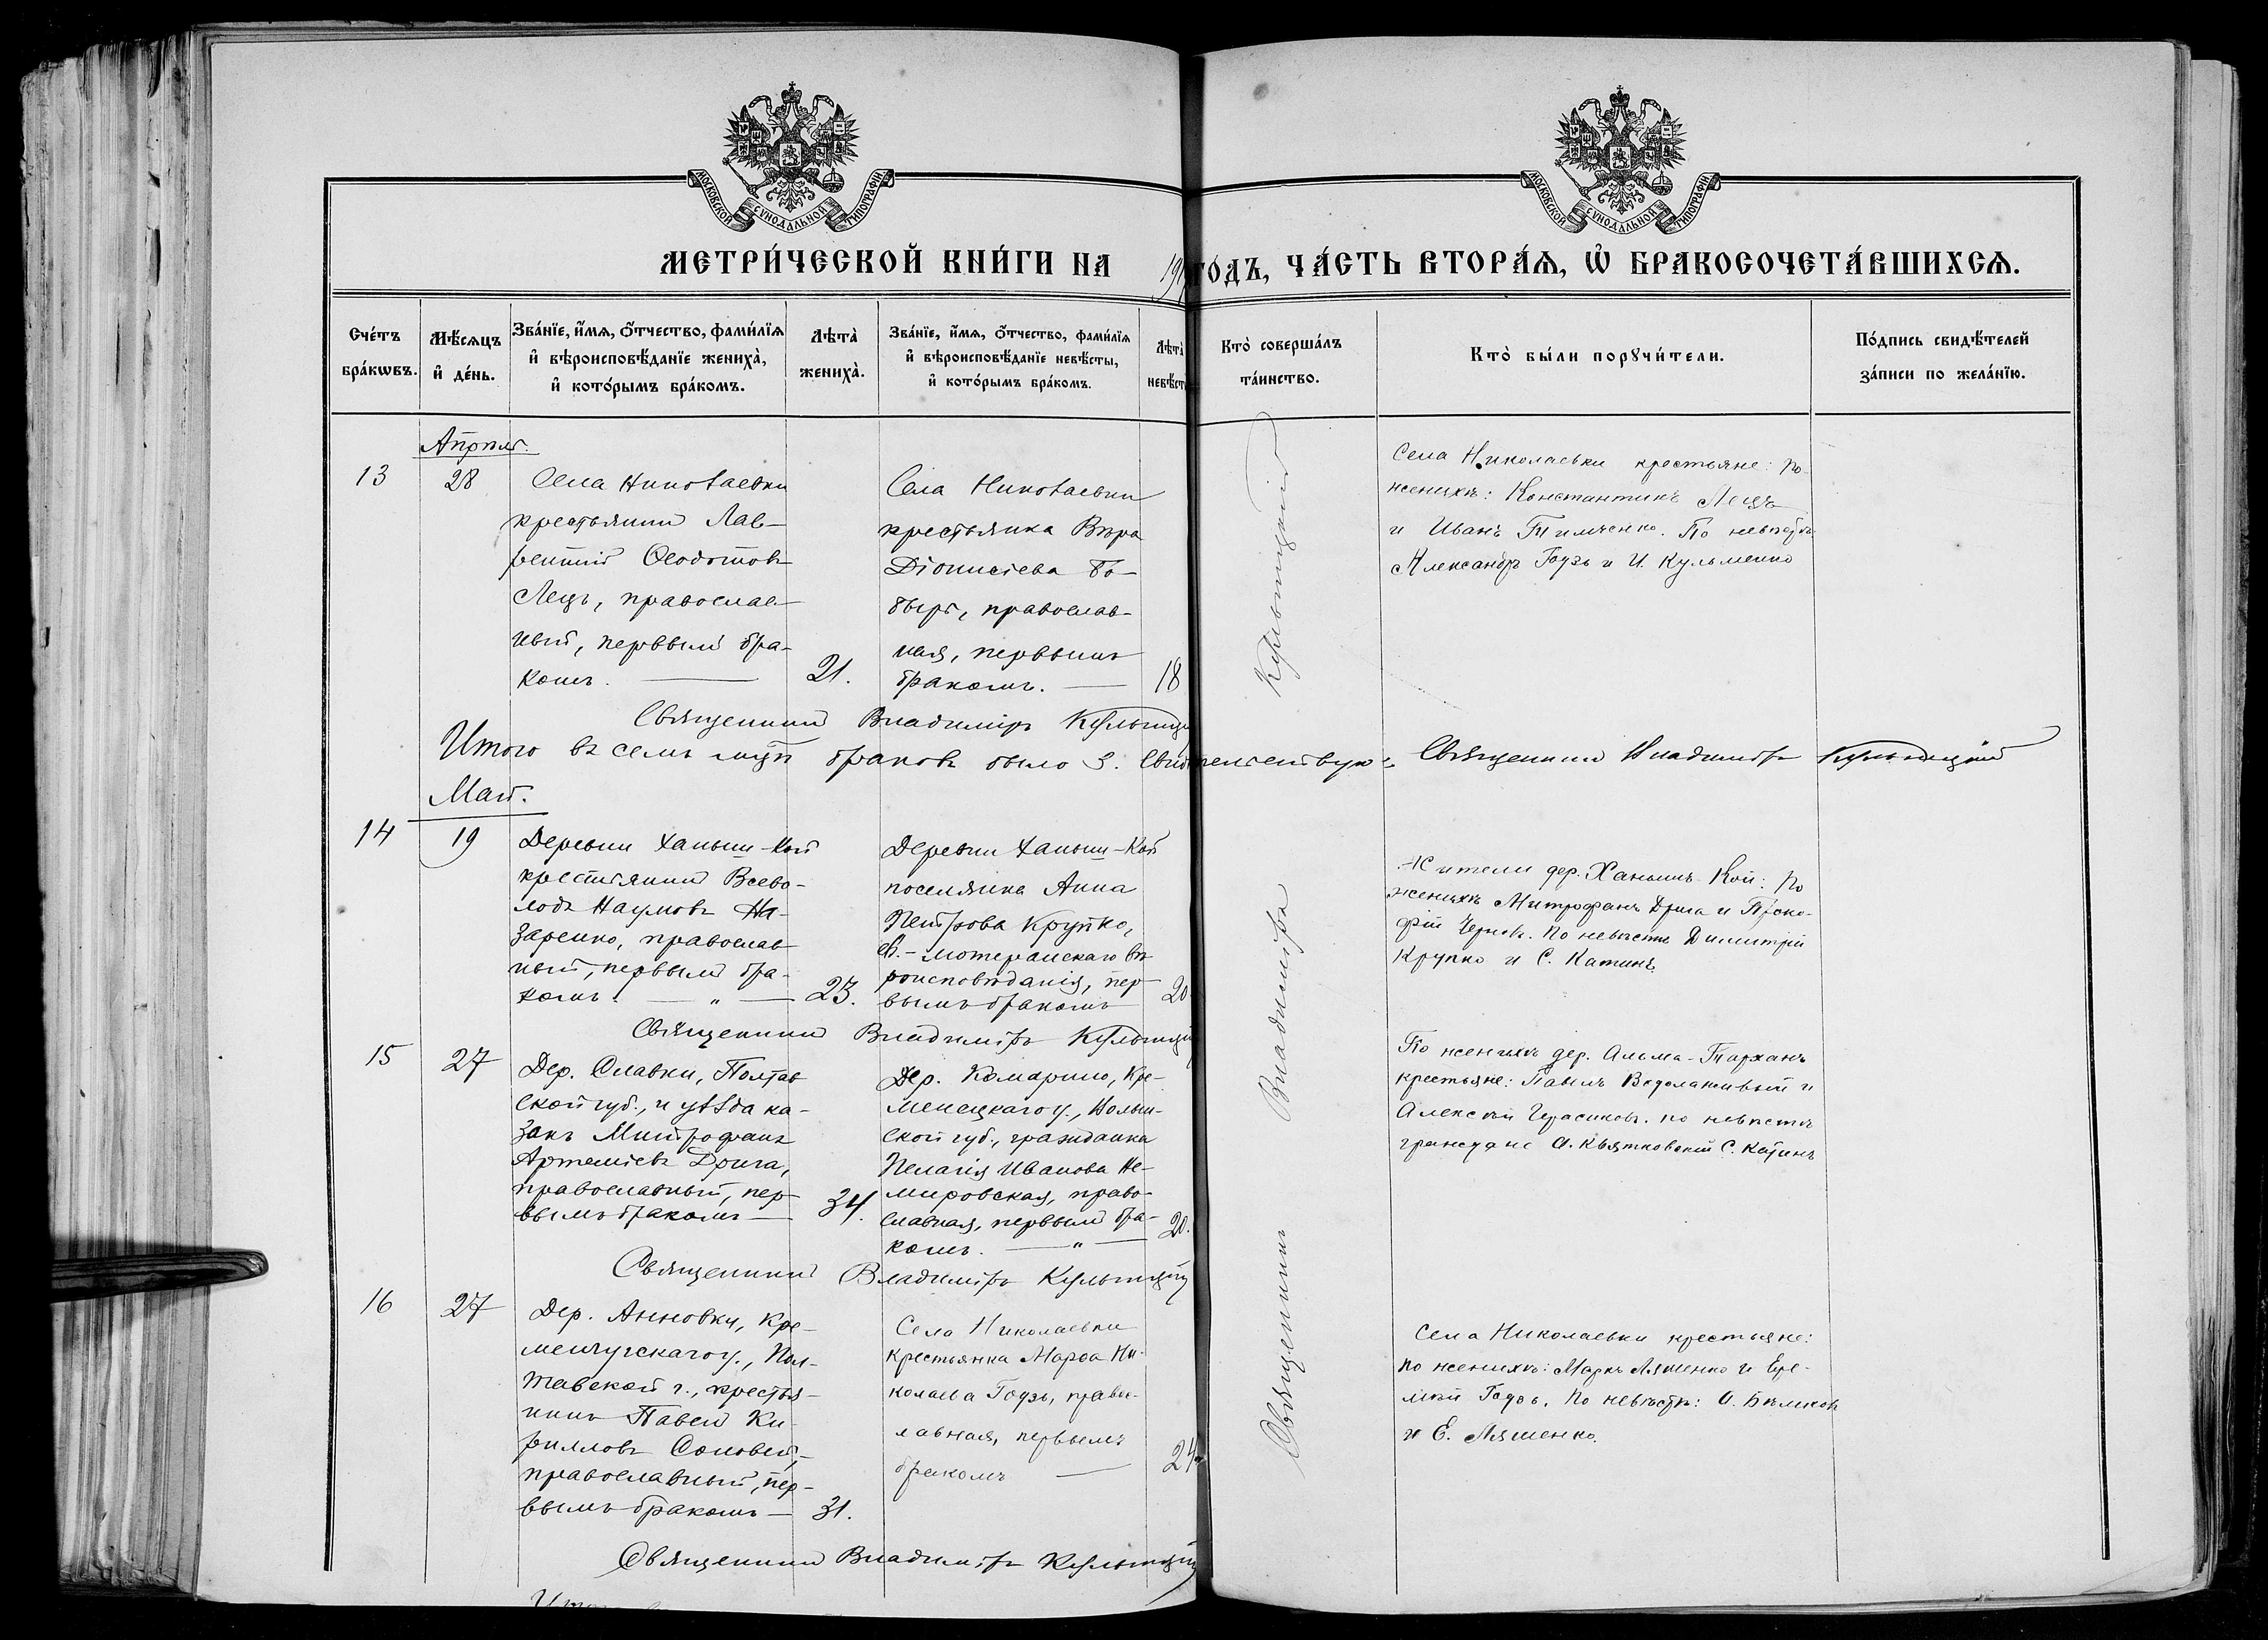 МОСКОВСКОЙ СѴНОДАЛЬНОЙ ТИПОГРАФІИ
МОСКОВСКОЙ СѴНОДАЛЬНОЙ ТИПОГРАФІИ
МЕТРИ́ЧЕСКОЙ КНИ́ГИ НА 19 ГОДЪ, ЧА́СТЬ ВТОРА́Ѧ, Ѡ҆ БРАКОСОЧЕТА́ВШИХСѦ.
Сче́тъ
бра́кѡвъ.
Мѣ́сѧцъ
и҆ де́нь.
Зва́нїе, и҆́мѧ, о҆́тчество, фами́лїѧ
и҆ вѣроисповѣ́данїе жениха̀,
и҆ кото́рымъ бра́комъ.
Лѣта̀
жениха̀.
Зва́нїе, и҆́мѧ, о҆́тчество, фами́лїѧ
и҆ вѣроисповѣ́данїе невѣ́сты,
и҆ кото́рымъ бра́комъ.
Лѣта̀
невѣ́ст
Кто̀ соверша́лъ
та́инство.
Кто̀ бы́ли порꙋчи́тели.
По́дпись свидѣ́телей
за́писи по жела́нїю.
Апрѣль.
13
28
Села Николаевки
крестьянинъ Лав-
рентій Ѳеодотовъ
Лецъ, православ-
ный, первымъ бра-
комъ.
21.
Села Николаевки
крестьянка Вѣра
Діонисіева Бо-
бырь, православ-
ная, первымъ
бракомъ.
18
Села Николаевки крестьяне: по
женихѣ: Константинъ Лецъ
и Иванъ Тимченко. По невѣстѣ
Александръ Гоузь и И. Кульменко
Священникъ Владиміръ Кульчицкій
Итого въ семъ м-цѣ браковъ было 3. Свидѣтельствую: Священникъ Владиміръ Кульчицкій
Май.
14
19
Деревни Ханыш-Кой
крестьянинъ Всево-
лодъ Наумовъ На-
заренко, православ
ный, первымъ бра-
комъ. — " —
23.
Деревни Ханыш-Кой
поселянка Анна
Петрова Крупко,
Ев.-лютеранскаго вѣ
роисповѣданія, пер
вымъ бракомъ
20
Жители дер. Ханышъ-Кой: по
женихѣ Митрофанъ Дрига и Проко-
фій Черновъ. По невѣстѣ Димитрій
Крупко и С. Катинъ
Священникъ Владиміръ Кульчицкій
15
27
Дер. Славки, Полтав
ской губ., и уѣзда ка-
закъ Митрофанъ
Артеміевъ Дрига,
православный, пер-
вымъ бракомъ —
34.
Дер. Комарино, Кре-
менецкаго у., Волын-
ской губ., гражданка
Пелагія Иванова Не-
мировская, право-
славная, первымъ бра-
комъ. — " —
20.
По женихѣ дер. Альма-Тарханъ
крестьяне: Павелъ Водолажскый и
Алексѣй Герасимовъ. по невѣстѣ
граждане А. Квятковскій С. Катинъ
Священникъ Владиміръ Кульчицкій
16
27
Дер. Анновки, Кре-
менчугскаго у., Пол-
тавской г., крестья-
нинъ Павелъ Ки-
рилловъ Соловей,
православный, пер-
вымъ бракомъ —
31.
Села Николаевки
крестьянка Марѳа Ни-
колаева Гоузь, правос-
лавная, первымъ
бракомъ —
24
Села Николаевки крестьяне:
по женихѣ: Маркъ Ляшенко и Ере-
мѣй Гоузь. По невѣстѣ: А. Бѣликовъ
и Е. Ляшенко.
Священникъ Владиміръ Кульчицкій
Священникъ Владиміръ Кульчицкій